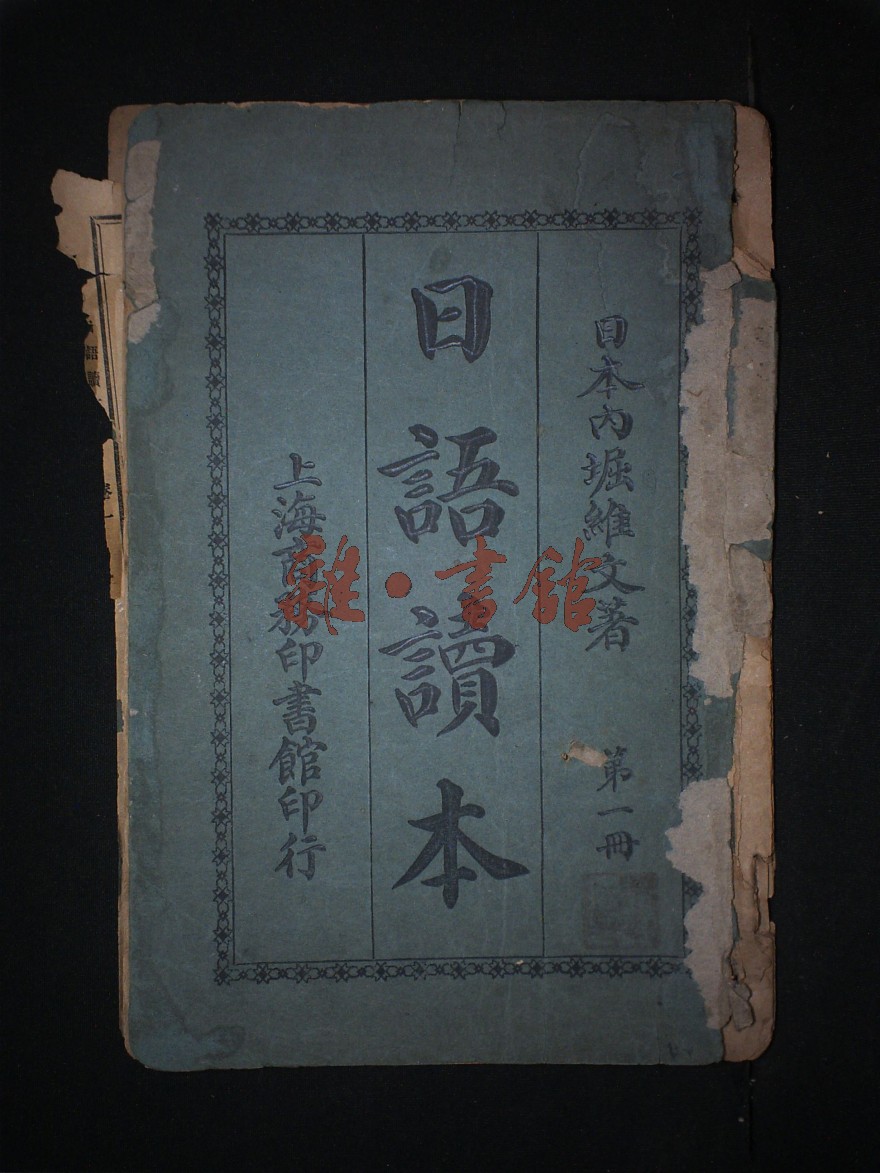 日本內堀維文著 第一冊
日語讀本
上海商務印書館印行
雜·書館
語讀
卷一